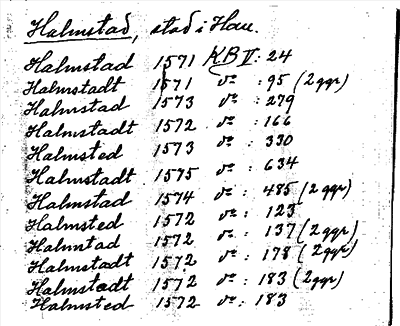 Halmstad, stad i Hall.
Halmstad 1571 KB V: 24
Halmstadt 1571 v= : 95 (2 ggr)
Halmstad 1573 v= : 279
Halmstadt 1572 v= : 166
Halmsted 1573 v= : 330
Halmstadt 1575 v= : 634
Halmstad 1574 v= : 485 (2 ggr)
Halmsted 1572 v= : 123
Halmtad 1572 v= : 137 (2 ggr)
Halmstadt 1572 v= : 178 (2 ggr)
Halmstadt 1572 v= : 183 (2 ggr)
Halmsted 1572 v= : 183